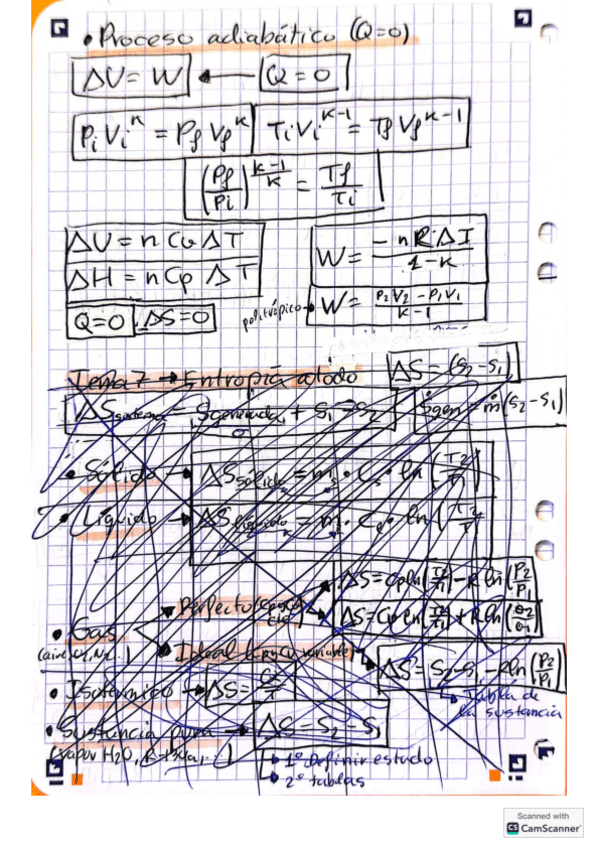 • Proceso adiabático (Q=0)
ΔU = W ← Q = 0
PiVi^k = PfVf^k TiVi^k-1 = TfVf^k-1
(Pf/Pi)^(k-1/k) = Tf/Ti
ΔU = n Cv ΔT
ΔH = n Cp ΔT
W = -nRΔT/1-k
Q=0 ΔS=0
politrópico→ W = P2V2 - P1V1/k-1
Tema 7 → Entropía a todo
ΔS = (S2-S1)
ΔSsistema = Sgenerada + S1 - S2
Ṡgen = ṁ(S2-S1)
• Sólido → ΔSsólido = ms · Cs · ln(T2/T1)
• Líquido → ΔSlíquido = m · Ce · ln(T2/T1)
ΔS = Cp ln(T2/T1) - R ln(P2/P1)
→ Perfecto (Cp y Cv cte)
• Gas
(aire, O2, N2...)
→ Ideal (Cp y Cv variable) → ΔS = S2 - S1 - R ln(P2/P1)
→ Tabla de
la sustancia
• Isotérmico → ΔS = Q/T
• Sustancia pura → ΔS = S2 - S1
(vapor H2O, R-134a, ...)
→ 1º Definir estado
→ 2º tablas
Scanned with
CS CamScanner